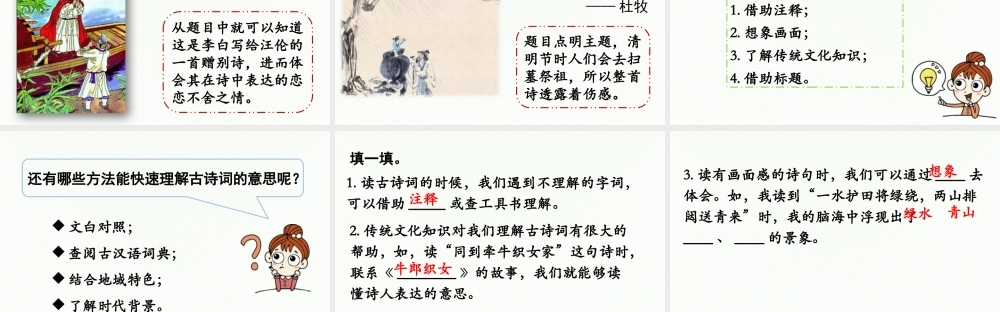 从题目中就可以知道
这是李白写给汪伦的
一首赠别诗，进而体
会其在诗中表达的恋
恋不舍之情。
—— 杜牧
题目点明主题，清
明节时人们会去扫
墓祭祖，所以整首
诗透露着伤感。
1. 借助注释；
2. 想象画面；
3. 了解传统文化知识；
4. 借助标题。
还有哪些方法能快速理解古诗词的意思呢？
◆ 文白对照；
◆ 查阅古汉语词典；
◆ 结合地域特色；
◆ 了解时代背景。
填一填。
1. 读古诗词的时候，我们遇到不理解的字词，
可以借助 注释 或查工具书理解。
2. 传统文化知识对我们理解古诗词有很大的
帮助，如，读“同到牵牛织女家”这句诗时，
联系《 牛郎织女 》的故事，我们就能够读
懂诗人表达的意思。
3. 读有画面感的诗句时，我们可以通过 想象 去
体会。如，我读到“一水护田将绿绕，两山排
闼送青来”时，我的脑海中浮现出了 绿水 青山
____ 、 ____ 的景象。